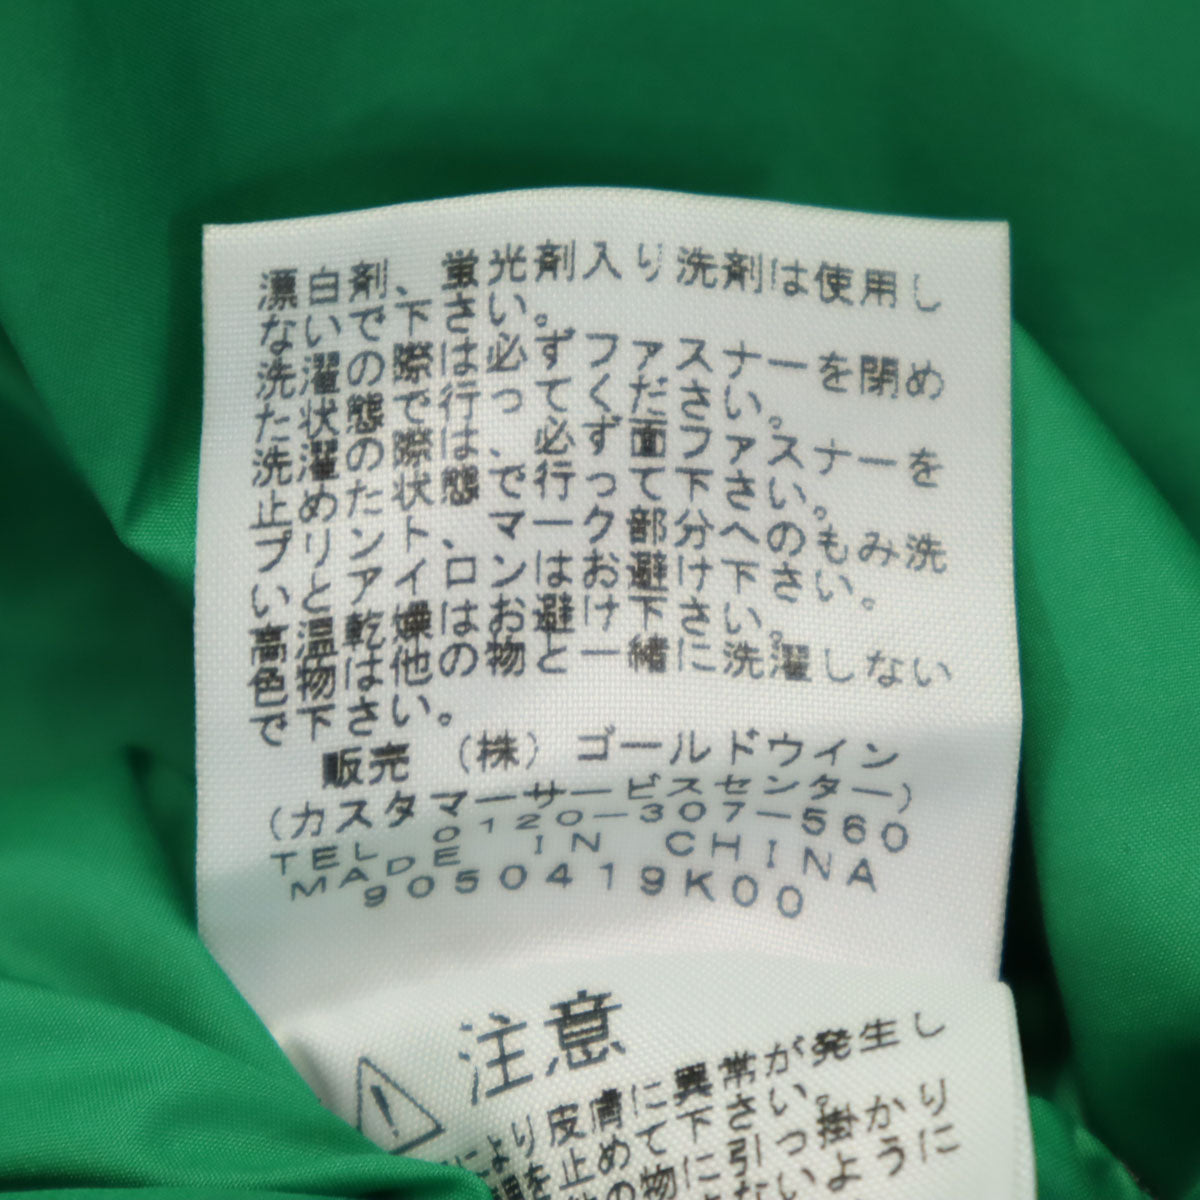 漂白剤、蛍光剤入り洗剤は使用し
ないで下さい。
洗濯の際は必ずファスナーを閉め
た状態で行ってください。
洗濯の際は、必ず面ファスナーを
止めた状態で行って下さい。
プリント、マーク部分へのもみ洗
いとアイロンはお避け下さい。
高温乾燥はお避け下さい。
色物は他の物と一緒に洗濯しない
で下さい。
販売 (株) ゴールドウイン
(カスタマーサービスセンター)
TEL 0120-307-560
MADE IN CHINA
9050419K00
注意
により皮膚に異常が発生し
を止めて下さい。
の物に引っ掛かり
ないように